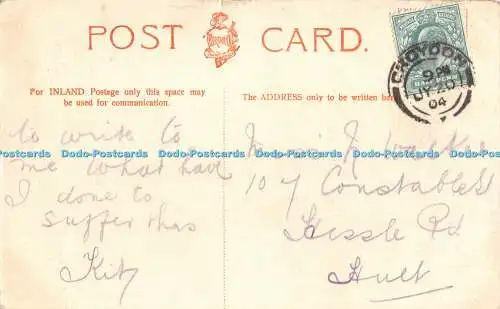 POST CARD.
For INLAND Postage only this space may
be used for communication.
The ADDRESS only to be written here
CROYDON
9 PM
JY 25
04
to write to
me what have
I done to
suffer thus
Kit
107 Constable St
Hessle Rd
Hull
Dodo-Postcards Dodo-Postcards Dodo-Postcards Dodo-Postcards Dodo-Postcards
Dodo-Postcards Dodo-Postcards Dodo-Postcards Dodo-Postcards Dodo-Postcards